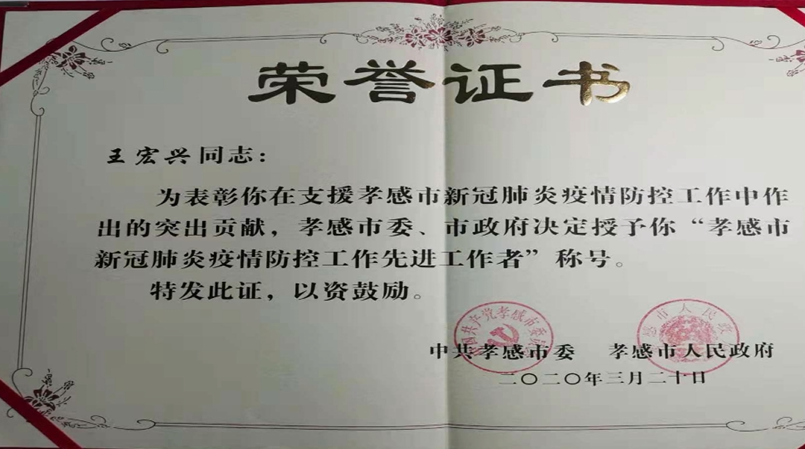 荣誉证书
王宏兴同志：
为表彰你在支援孝感市新冠肺炎疫情防控工作中作
出的突出贡献，孝感市委、市政府决定授予你“孝感市
新冠肺炎疫情防控工作先进工作者”称号。
特发此证，以资鼓励。
中共孝感市委 孝感市人民政府
二〇二〇年三月二十日